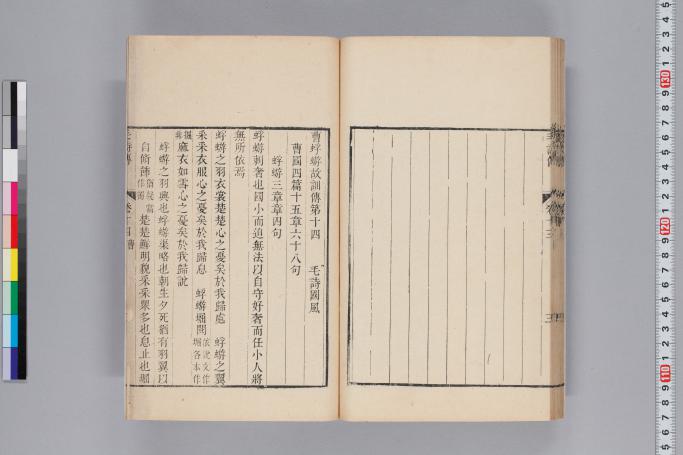 曹蜉蝣故訓傳第十四　毛詩國風
曹國四篇十五章六十八句
蜉蝣三章章四句
蜉蝣刺奢也國小而迫無法以自守好奢而任小人將
無所依焉
蜉蝣之羽衣裳楚楚心之憂矣於我歸處　蜉蝣之翼
采采衣服心之憂矣於我歸息　蜉蝣堀閱依說文作堀各本作
掘非麻衣如雪心之憂矣於我歸說
蜉蝣之羽興也蜉蝣渠略也朝生夕死猶有羽翼以
自脩飾楚楚鮮明貌采采眾多也息止也堀
卷十四